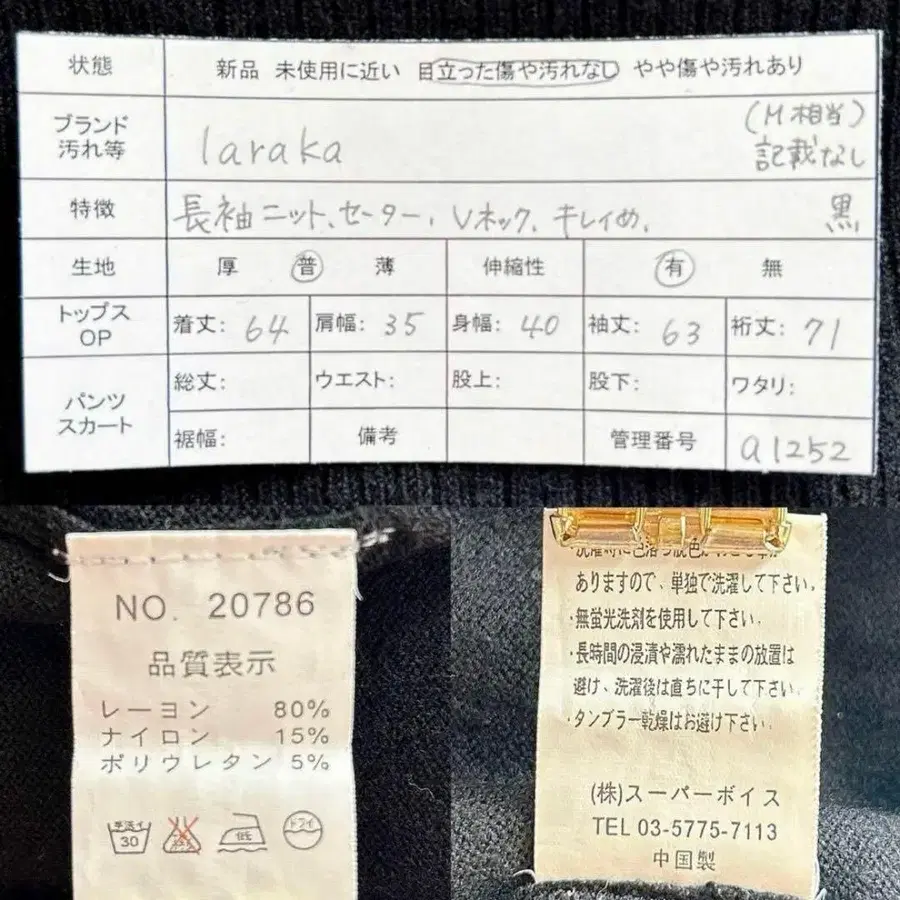 状態 新品 未使用に近い 目立った傷や汚れなし やや傷や汚れあり
ブランド
汚れ等
laraka
(M相当)
記載なし
特徴 長袖ニット、セーター、Vネック、キレイめ、 黒
生地 厚 普 薄 伸縮性 有 無
トップス
OP
着丈: 64 肩幅: 35 身幅: 40 袖丈: 63 裄丈: 71
パンツ
スカート
総丈: ウエスト: 股上: 股下: ワタリ:
裾幅: 備考 管理番号 a1252
NO. 20786
品質表示
レーヨン 80%
ナイロン 15%
ポリウレタン 5%
手洗イ
30
低
ドライ
ありますので、単独で洗濯して下さい。
・無蛍光洗剤を使用して下さい。
・長時間の浸漬や濡れたままの放置は
避け、洗濯後は直ちに干して下さい。
・タンブラー乾燥はお避け下さい。
(株)スーパーボイス
TEL 03-5775-7113
中国製